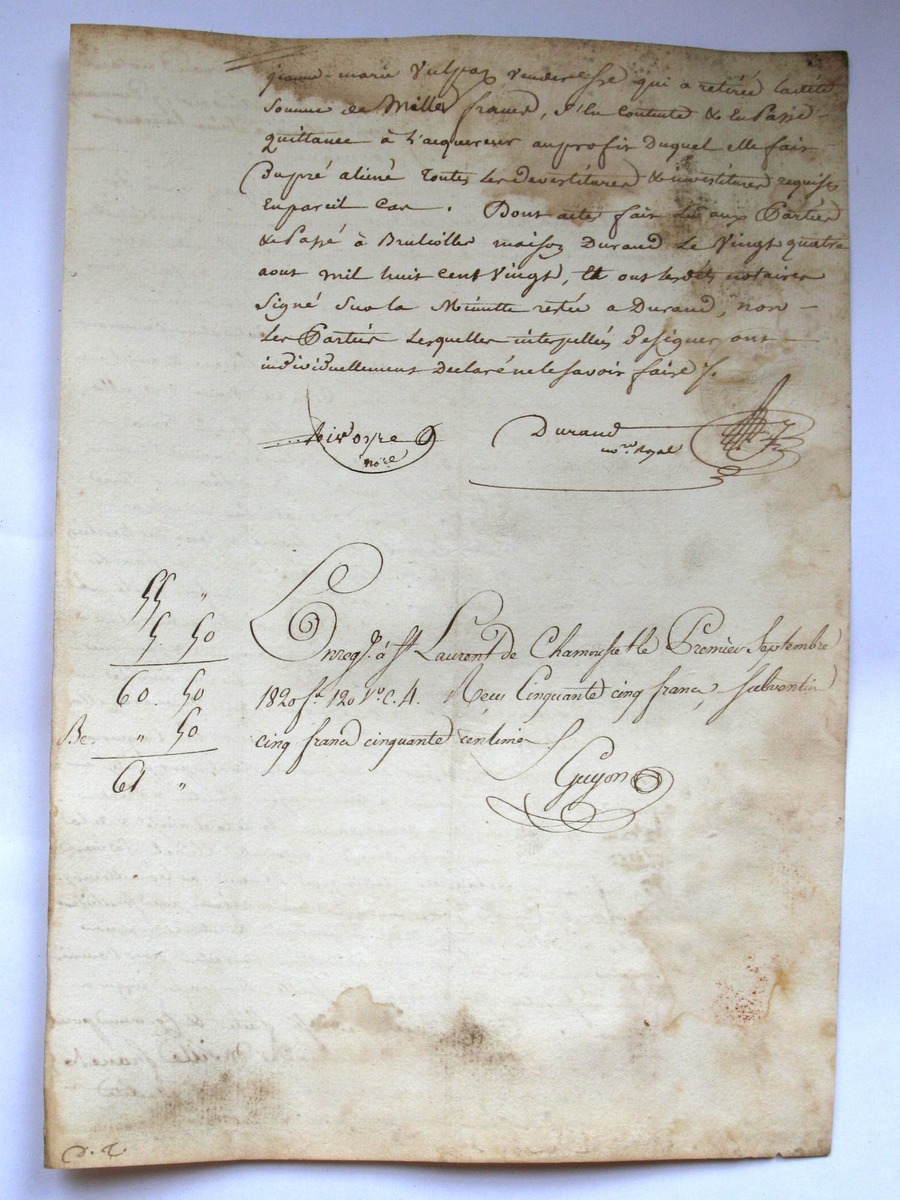 jeanne-marie Vulpaz venderesse qui a retirée ladite
Somme de Mille francs, s'en Contente & en Passe
quittance à l'acquereur au profit Duquel elle fait
Du pré aliéné toutes les devestitures & investitures requises
En pareil Cas. Dont acte fait Lu aux Parties
& Passé à Brulioles maison Durand Le Vingt quatre
aout mil huit cent Vingt, Et ont lesdits notaires
Signé Sur la Minutte restée a Durand, non
Les Parties Lesquelles interpellées De signer ont
individuellement Declaré ne le savoir faire /.
nore
Durand
nore. Royal
55 "
5. 50
60. 50
Be. " 50
61 "
Enregt. à St Laurent de Chamousset le Premier Septembre
1820 fo. 120 Vo. c. 4. Recu Cinquante cinq francs, Subvention
cinq francs cinquante centimes
Guyon